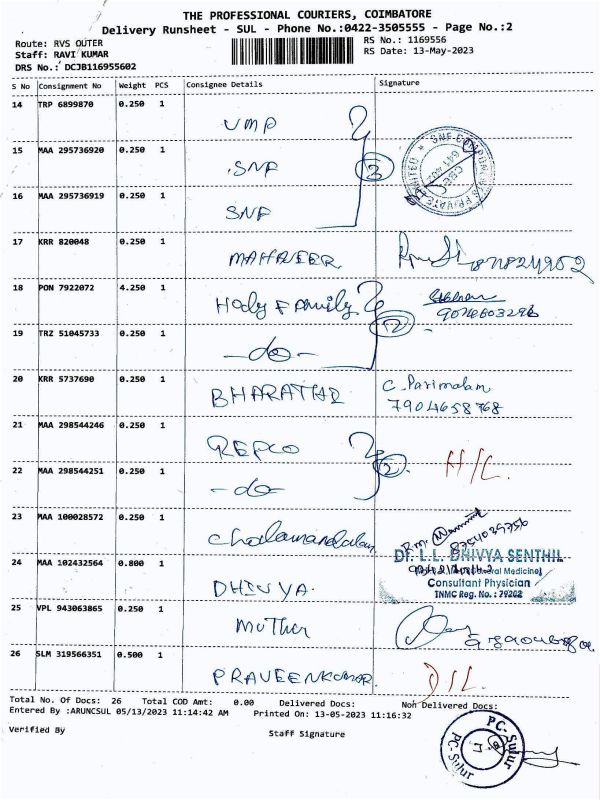 THE PROFESSIONAL COURIERS, COIMBATORE
Delivery Runsheet - SUL - Phone No.:0422-3505555 - Page No.:2
Route: RVS OUTER
Staff: RAVI KUMAR
DRS No.: DCJB116955602
RS No.: 1169556
RS Date: 13-May-2023
S No Consignment No Weight PCS Consignee Details Signature
14 TRP 6899870 0.250 1 VMP
15 MAA 295736920 0.250 1 SNF
16 MAA 295736919 0.250 1 SNF
3
17 KRR 820048 0.250 1 MAHAVEER
18 PON 7922072 4.250 1 Holy Family
9074603296
19 TRZ 51045733 0.250 1 -do-
2
20 KRR 5737690 0.250 1 BHARATHI C. Parimalam
7904658768
21 MAA 298544246 0.250 1 REPCO
22 MAA 298544251 0.250 1 -do-
2
H/C.
23 MAA 100028572 0.250 1 Cholamandalam
8754039756
24 MAA 102432564 0.800 1 DHIVYA.
Dr. L.L. DHIVYA SENTHIL
Consultant Physician
TNMC Reg. No.: 79202
25 VPL 943063865 0.250 1 Mother
26 SLM 319566351 0.500 1 PRAVEENKUMAR. D/L.
Total No. Of Docs: 26 Total COD Amt: 0.00 Delivered Docs: Non Delivered Docs:
Entered By :ARUNCSUL 05/13/2023 11:14:42 AM Printed On: 13-05-2023 11:16:32
Verified By Staff Signature
PC-Sulur
PC-Sulur